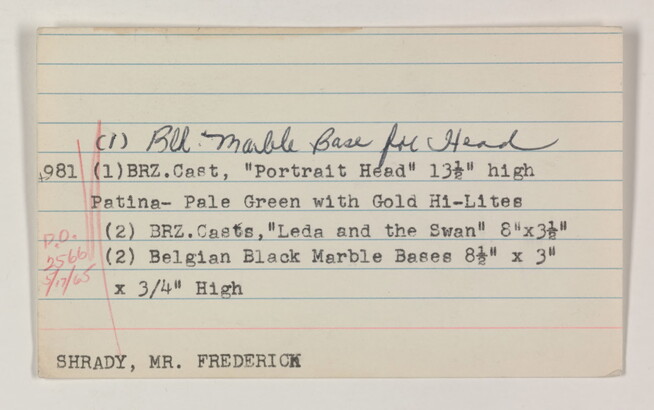 (1) Blk. Marble Base for Head
4981 (1)BRZ.Cast, "Portrait Head" 13½" high
Patina- Pale Green with Gold Hi-Lites
(2) BRZ.Casts,"Leda and the Swan" 8"x3½"
(2) Belgian Black Marble Bases 8½" x 3"
x 3/4" High
P.O.
2566
5/17/65
SHRADY, MR. FREDERICK